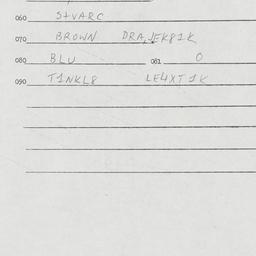 060 StVARC
070 BROWN DRAJEK81K
080 BLU 081 0
090 T1NKL8 LE4XT1K